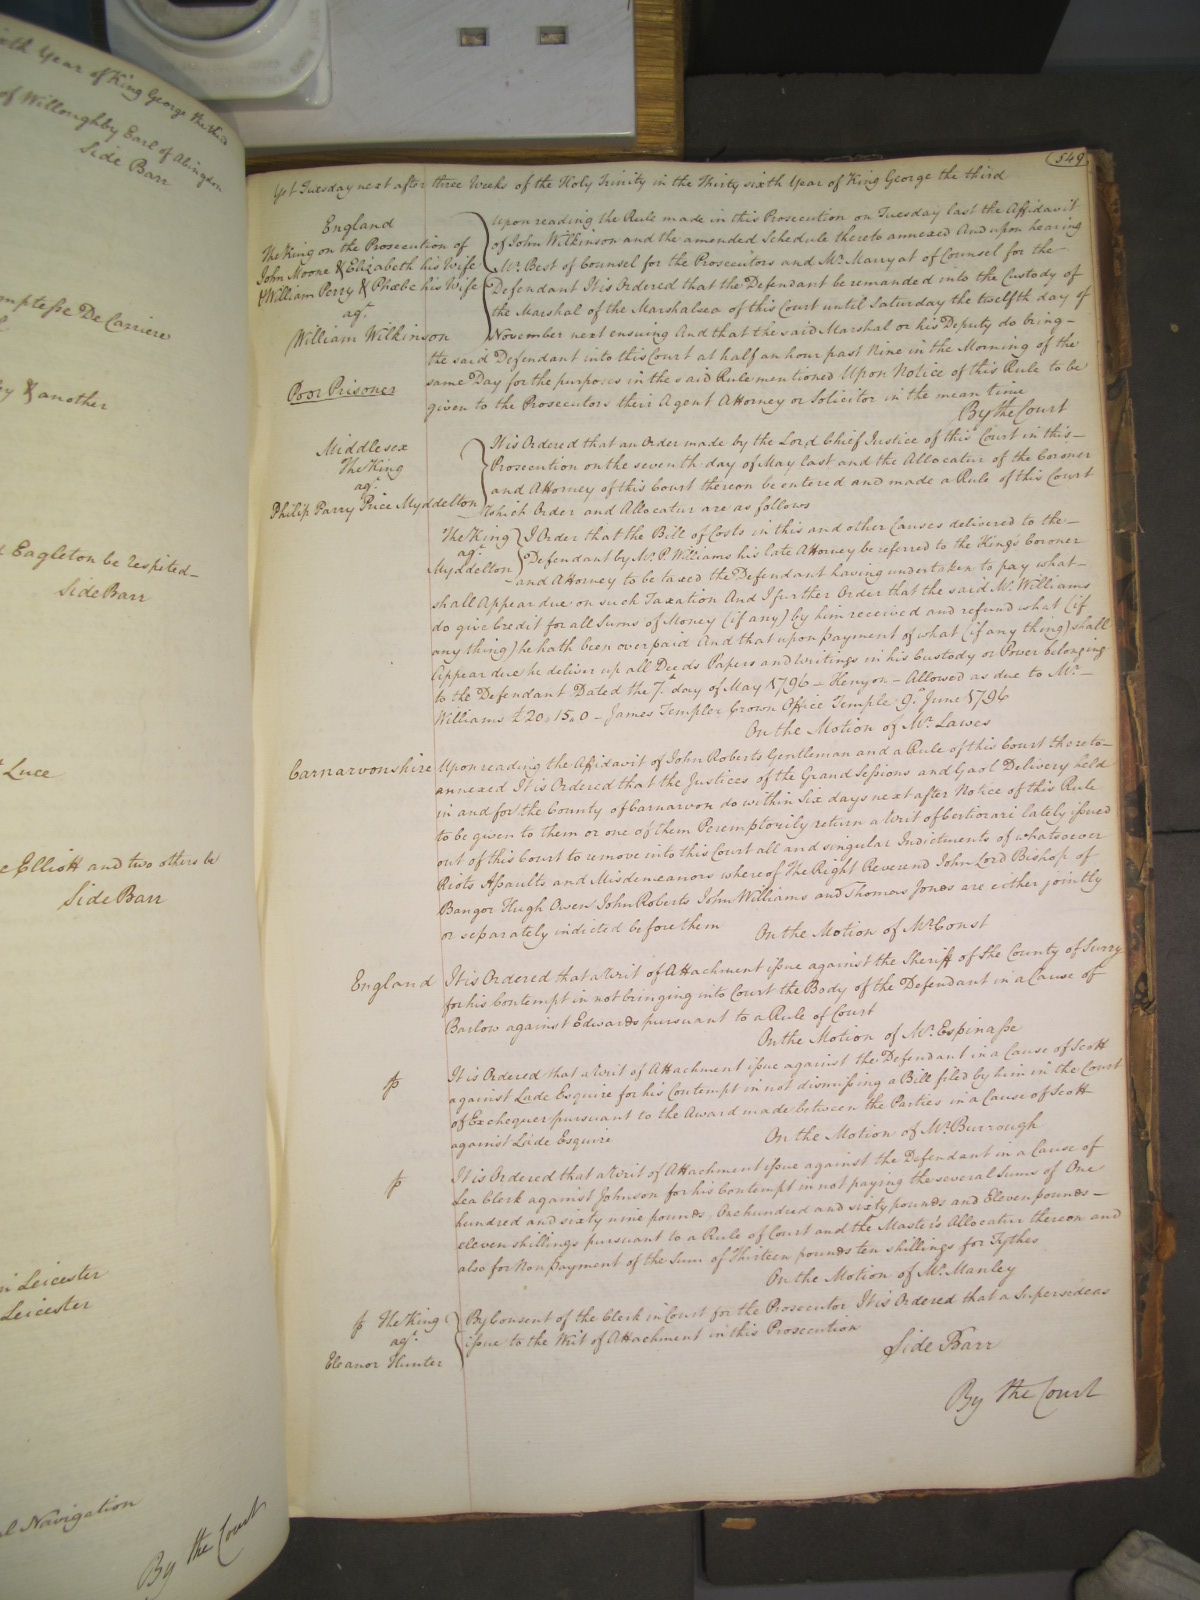 ixth Year of King George the third
of Willoughby Earl of Abingdon
Side Barr
mptesse De Carriere
ey & another
Eagleton be respited
Side Barr
Luce
Elliott and two others be
Side Barr
in Leicester
Leicester
al Navigation
By the Court
549
Yet Tuesday next after three Weeks of the Holy Trinity in the Thirty sixth Year of King George the third
England
The King on the Prosecution of
John Moone & Elizabeth his Wife
& William Perry & Phœbe his Wife
agt
William Wilkinson
Poor Prisoner
Upon reading the Rule made in this Prosecution on Tuesday last the Affidavit
of John Wilkinson and the amended Schedule thereto annexed And upon hearing
Mr. Best of Counsel for the Prosecutors and Mr. Marryat of Counsel for the
Defendant It is Ordered that the Defendant be remanded into the Custody of
the Marshal of the Marshalsea of this Court until Saturday the twelfth day of
November next ensuing And that the said Marshal or his Deputy do bring
the said Defendant into this Court at half an hour past Nine in the Morning of the
same Day for the purposes in the said Rule mentioned Upon Notice of this Rule to be
given to the Prosecutors their Agent Attorney or Solicitor in the mean time
By the Court
Middlesex
The King
agt
Philip Parry Price Myddelton
It is Ordered that an Order made by the Lord Chief Justice of this Court in this
Prosecution on the seventh day of May last and the Allocatur of the Coroner
and Attorney of this Court thereon be entered and made a Rule of this Court
Which Order and Allocatur are as follows
The King
agt
Myddelton
I Order that the Bill of Costs in this and other Causes delivered to the
Defendant by Mr. P. Williams his late Attorney be referred to the King's Coroner
and Attorney to be taxed the Defendant having undertaken to pay what
shall Appear due on such Taxation And I further Order that the said Mr. Williams
do give Credit for all Sums of Money (if any) by him received and refund what (if
any thing) he hath been overpaid And that upon payment of what (if any thing) shall
Appear due he deliver up all Deeds Papers and Writings in his Custody or Power belonging
to the Defendant Dated the 7th day of May 1796 - Kenyon - Allowed as due to Mr.
Williams £20.15.0 - James Templer Crown Office Temple 9th June 1796
On the Motion of Mr. Lawes
Carnarvonshire
Upon reading the Affidavit of John Roberts Gentleman and a Rule of this Court thereto
annexed It is Ordered that the Justices of the Grand Sessions and Gaol Delivery held
in and for the County of Carnarvon do within Six days next after Notice of this Rule
to be given to them or one of them Peremptorily return a Writ of Certiorari lately issued
out of this Court to remove into this Court all and singular Indictments of whatsoever
Riots Assaults and Misdemeanors whereof The Right Reverend John Lord Bishop of
Bangor Hugh Owen John Roberts John Williams and Thomas Jones are either jointly
or separately indicted before them
On the Motion of Mr. Const
England
It is Ordered that a Writ of Attachment issue against the Sheriff of the County of Surry
for his Contempt in not bringing into Court the Body of the Defendant in a Cause of
Barlow against Edwards pursuant to a Rule of Court
On the Motion of Mr. Espinasse
It is Ordered that a Writ of Attachment issue against the Defendant in a Cause of Scott
against Lade Esquire for his Contempt in not dismissing a Bill filed by him in the Court
of Exchequer pursuant to the Award made between the Parties in a Cause of Scott
against Lade Esquire
On the Motion of Mr. Burrough
It is Ordered that a Writ of Attachment issue against the Defendant in a Cause of
Lea Clerk against Johnson for his Contempt in not paying the several Sums of One
hundred and sixty nine pounds, One hundred and sixty pounds and Eleven pounds
eleven shillings pursuant to a Rule of Court and the Master's Allocatur thereon and
also for Non payment of the Sum of Thirteen pounds ten shillings for Tythes
On the Motion of Mr. Manley
The King
agt
Eleanor Hunter
By Consent of the Clerk in Court for the Prosecutor It is Ordered that a Supersedeas
issue to the Writ of Attachment in this Prosecution
Side Barr
By the Court